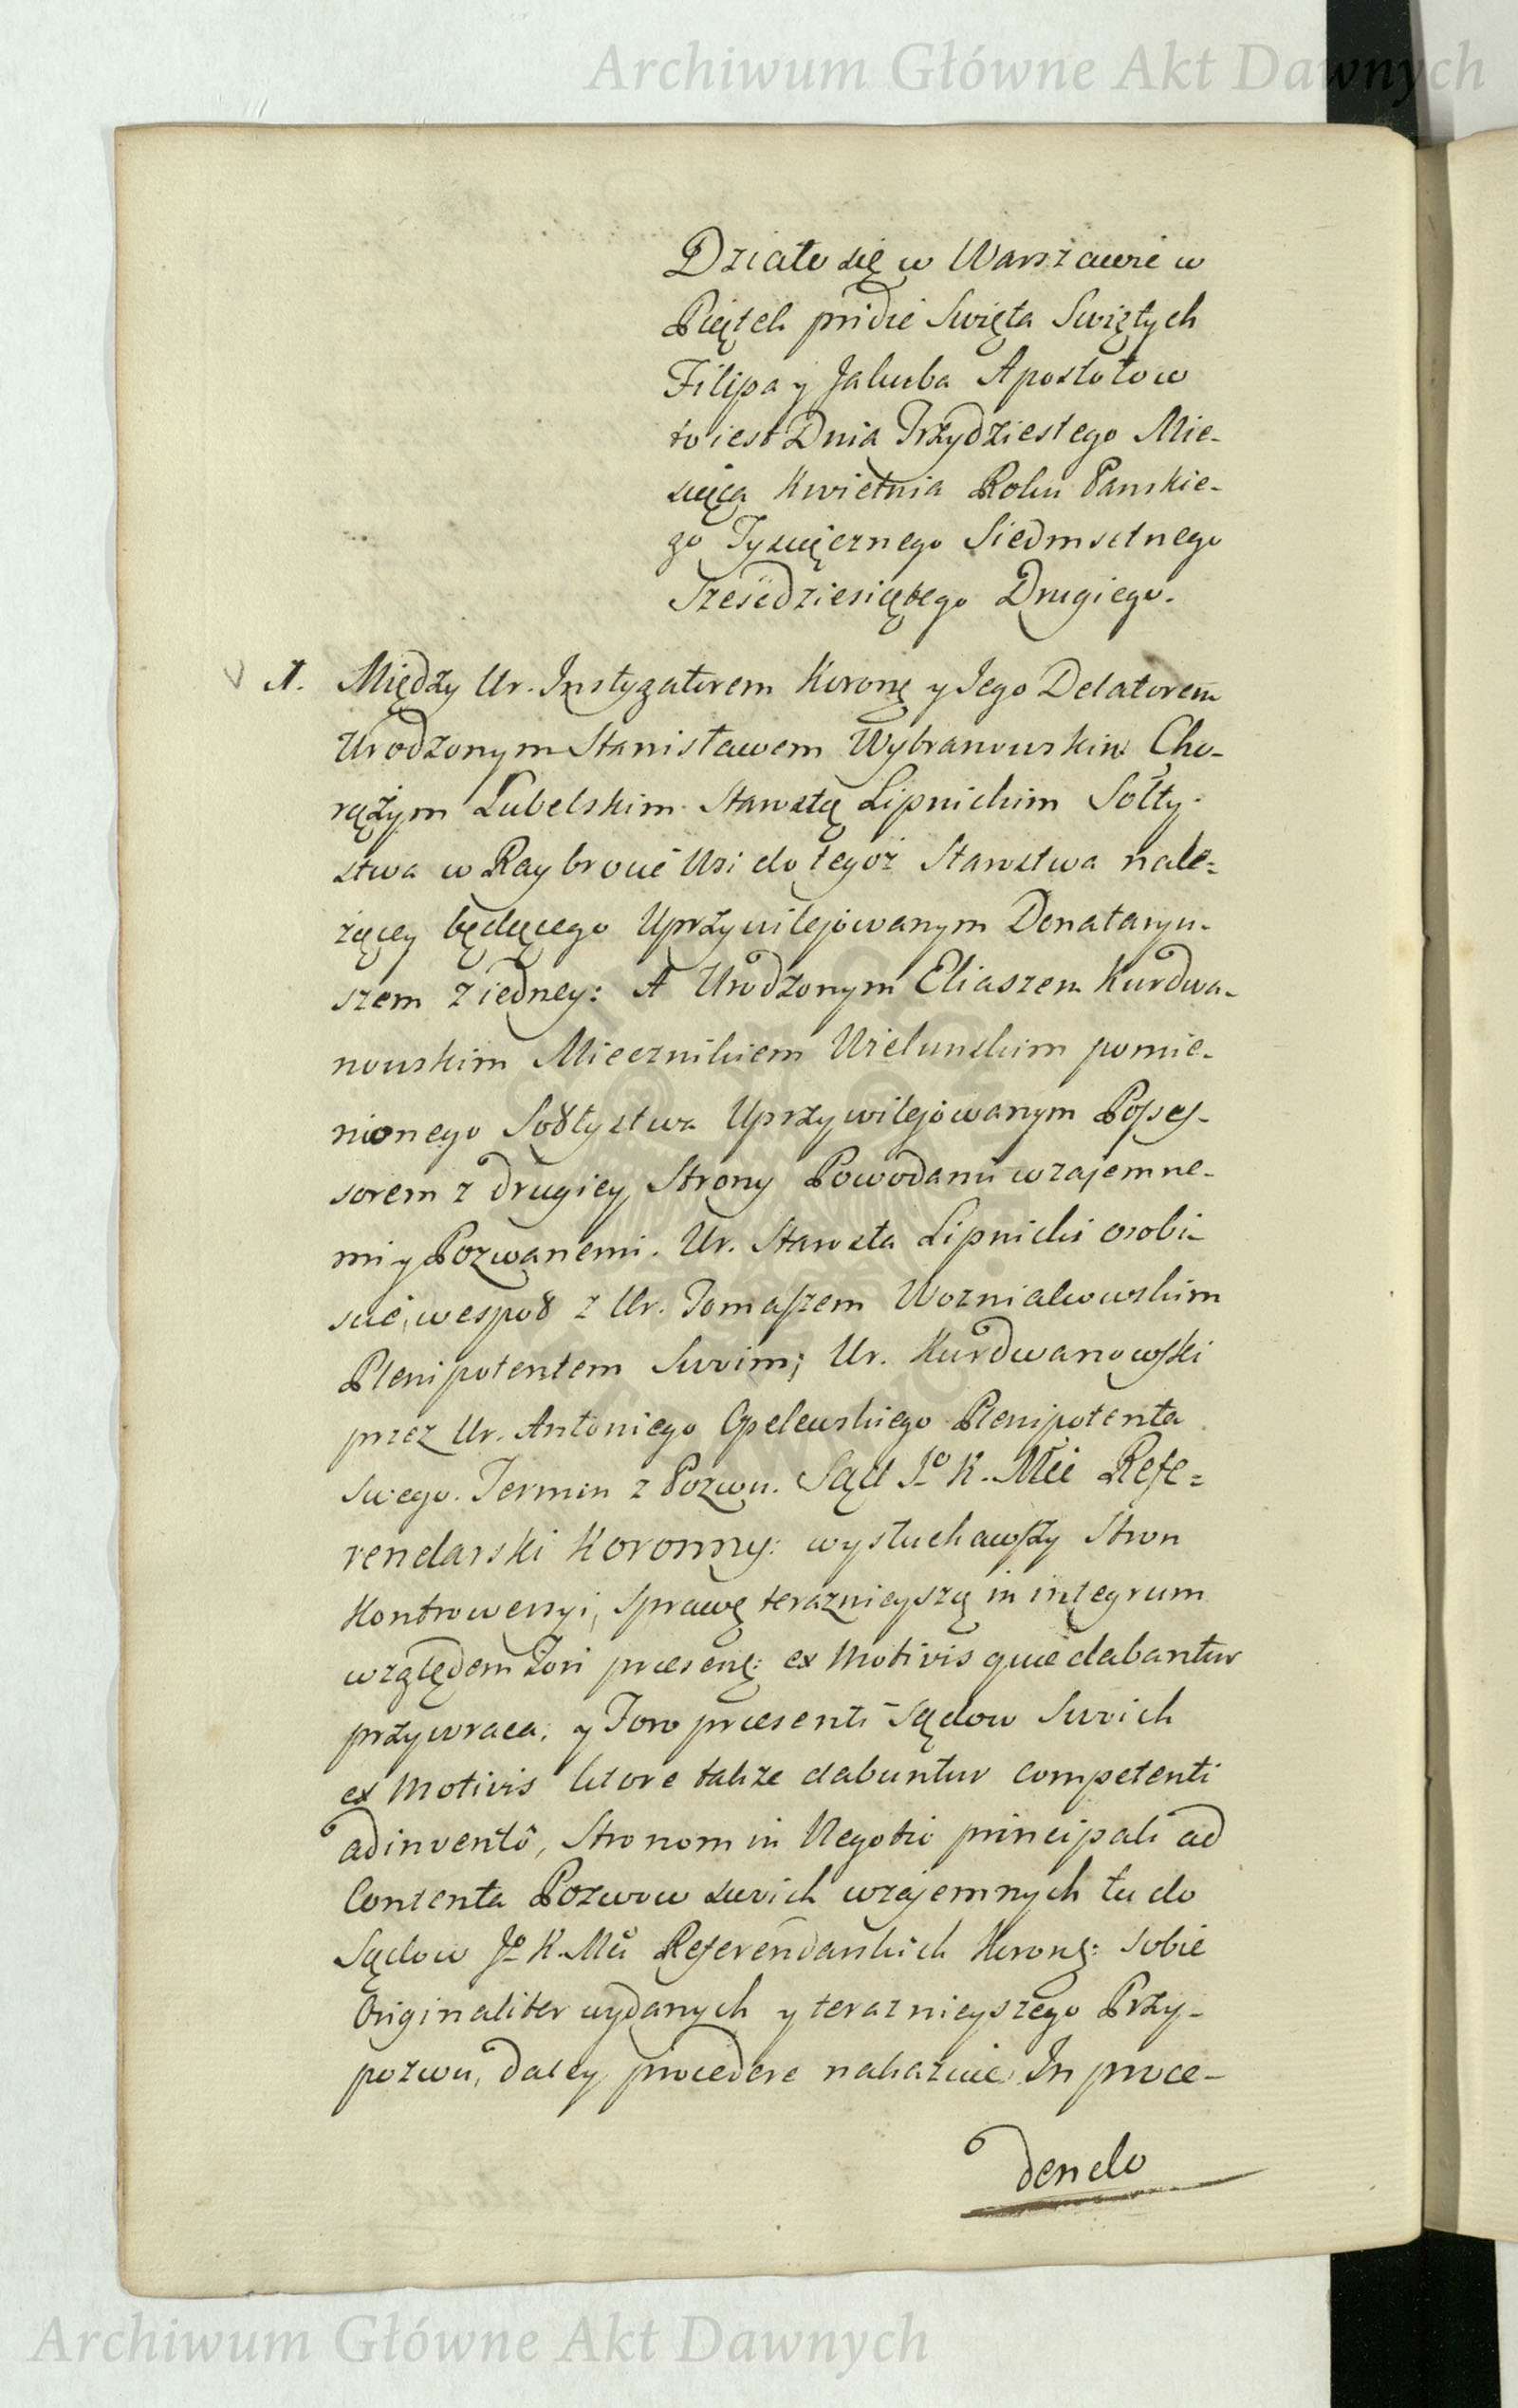 Archiwum Główne Akt Dawnych
Działo się w Warszawie w
Piątek pridie Swięta Swiętych
Filipa y Jakuba Apostołow
to iest Dnia Trzydziestego Mie-
siąca Kwietnia Roku Panskie-
go Tysiącznego Siedmsetnego
Szesćdziesiątego Drugiego.
1. Między Ur. Instygatorem Koronę y Jego Delatorem
Urodzonym Stanisławem Wybranowskim Cho-
rążym Lubelskim Starostą Lipnickim Sołty-
stwa w Raybrocie Wsi do tegoż Starostwa nale-
żącey będącego Uprzywilejowanym Donataryu-
szem z iedney: A Urodzonym Eliaszem Kurdwa-
nowskim Miecznikiem Wielunskim pomie-
nionego Sołtystwa Uprzywilejowanym Posses-
sorem z drugiey Strony Powodami wzajemne-
mi y Pozwanemi. Ur. Starosta Lipnicki osobi-
scie, wespoł z Ur. Tomaszem Wozniakowskim
Plenipotentem Swoim; Ur. Kurdwanowski
przez Ur. Antoniego Opelewskiego Plenipotenta
swego. Termin z Pozwu. Sąd Jo K. Mci Refe-
rendarski Koronny: wysłuchawszy Stron
Kontrowersyi, sprawę teraznieyszą in integrum
względem Fori præsenę: ex Motivis quæ dabantur
przywraca, y Foro præsenti Sądow Swoich
ex Motivis ktore także dabuntur competenti
adinventô, Stronom in Negotio principali ad
Contenta Pozwow swoich wzajemnych tu do
Sądow Jo K. Mci Referendarskich Koronę: sobie
Originaliter wydanych y teraznieyszego Przy-
pozwu, daley procedere nakazuie. In proce-
dendo
Archiwum Główne Akt Dawnych